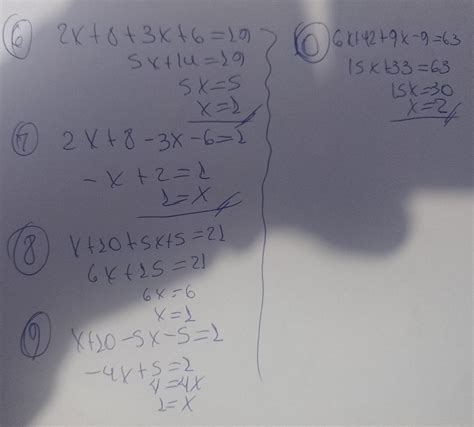 6 2x+8+3x+6=19
5x+14=19
5x=5
x=1
7 2x+8-3x-6=1
-x+2=1
1=x
8 x+10+5x+5=21
6x+15=21
6x=6
x=1
9 x+10-5x-5=1
-4x+5=1
4=4x
1=x
10 6x+42+9x-9=63
15x+33=63
15x=30
x=2